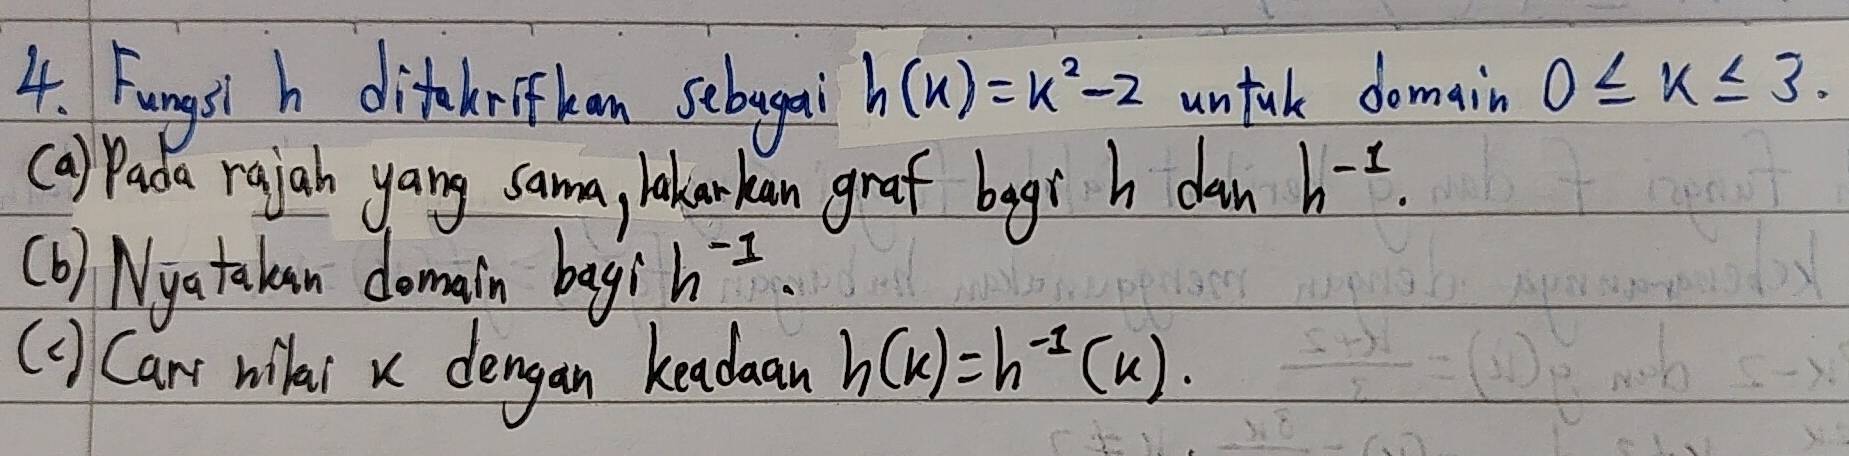 4. Fungsi h ditakrifkan sebagai h(x)=x²-2 untuk domain 0 ≤ x ≤ 3.
(a) Pada rajah yang sama, lakarkan graf bagi h dan h⁻¹.
(b) Nyatakan domain bagi h⁻¹.
(c) Cari nilai x dengan keadaan h(x)=h⁻¹(x).